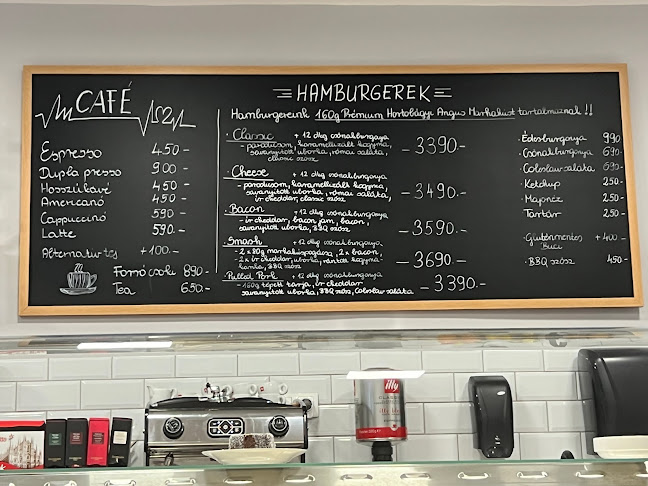 CAFÉ
Espresso 450-
Dupla presso 900-
Hosszúkávé 450-
Americanó 450-
Cappuccinó 590-
Latte 590.-
Alternatív tej +100.-
Forró csoki 890-
Tea 650-
=HAMBURGEREK=
Hamburgereink 160g Prémium Hortobágyi Angus Marhahúst tartalmaznak !!
· Classic + 12 dkg csónakburgonya -3390.-
- paradicsom, karamellizált hagyma,
savanyított uborka, római saláta,
classic szósz
· Cheese + 12 dkg csónakburgonya -3490.-
- paradicsom, karamellizált hagyma,
savanyított uborka, római saláta,
ír cheddar, classic szósz
· Bacon + 12 dkg csónakburgonya -3590.-
- ír cheddar, bacon jam, bacon,
savanyított uborka, BBQ szósz
· Smash + 12 dkg csónakburgonya -3690.-
- 2 x 80g marhahúspogácsa, 2x bacon,
- 2 x ír cheddar, uborka, rántott hagyma
karika, BBQ szósz
· Pulled Pork + 12 dkg csónakburgonya -3390.-
- 160g tépett tarja, ír cheddar
savanyított uborka, BBQ szósz, Coleslaw saláta
· Édesburgonya 990
· Csónakburgonya 690.-
· Coleslaw saláta 690-
· Ketchup 250-
· Majonéz 250.-
· Tartár 250.-
· Gluténmentes + 400 -
Buci
· BBQ szósz 450-
illy